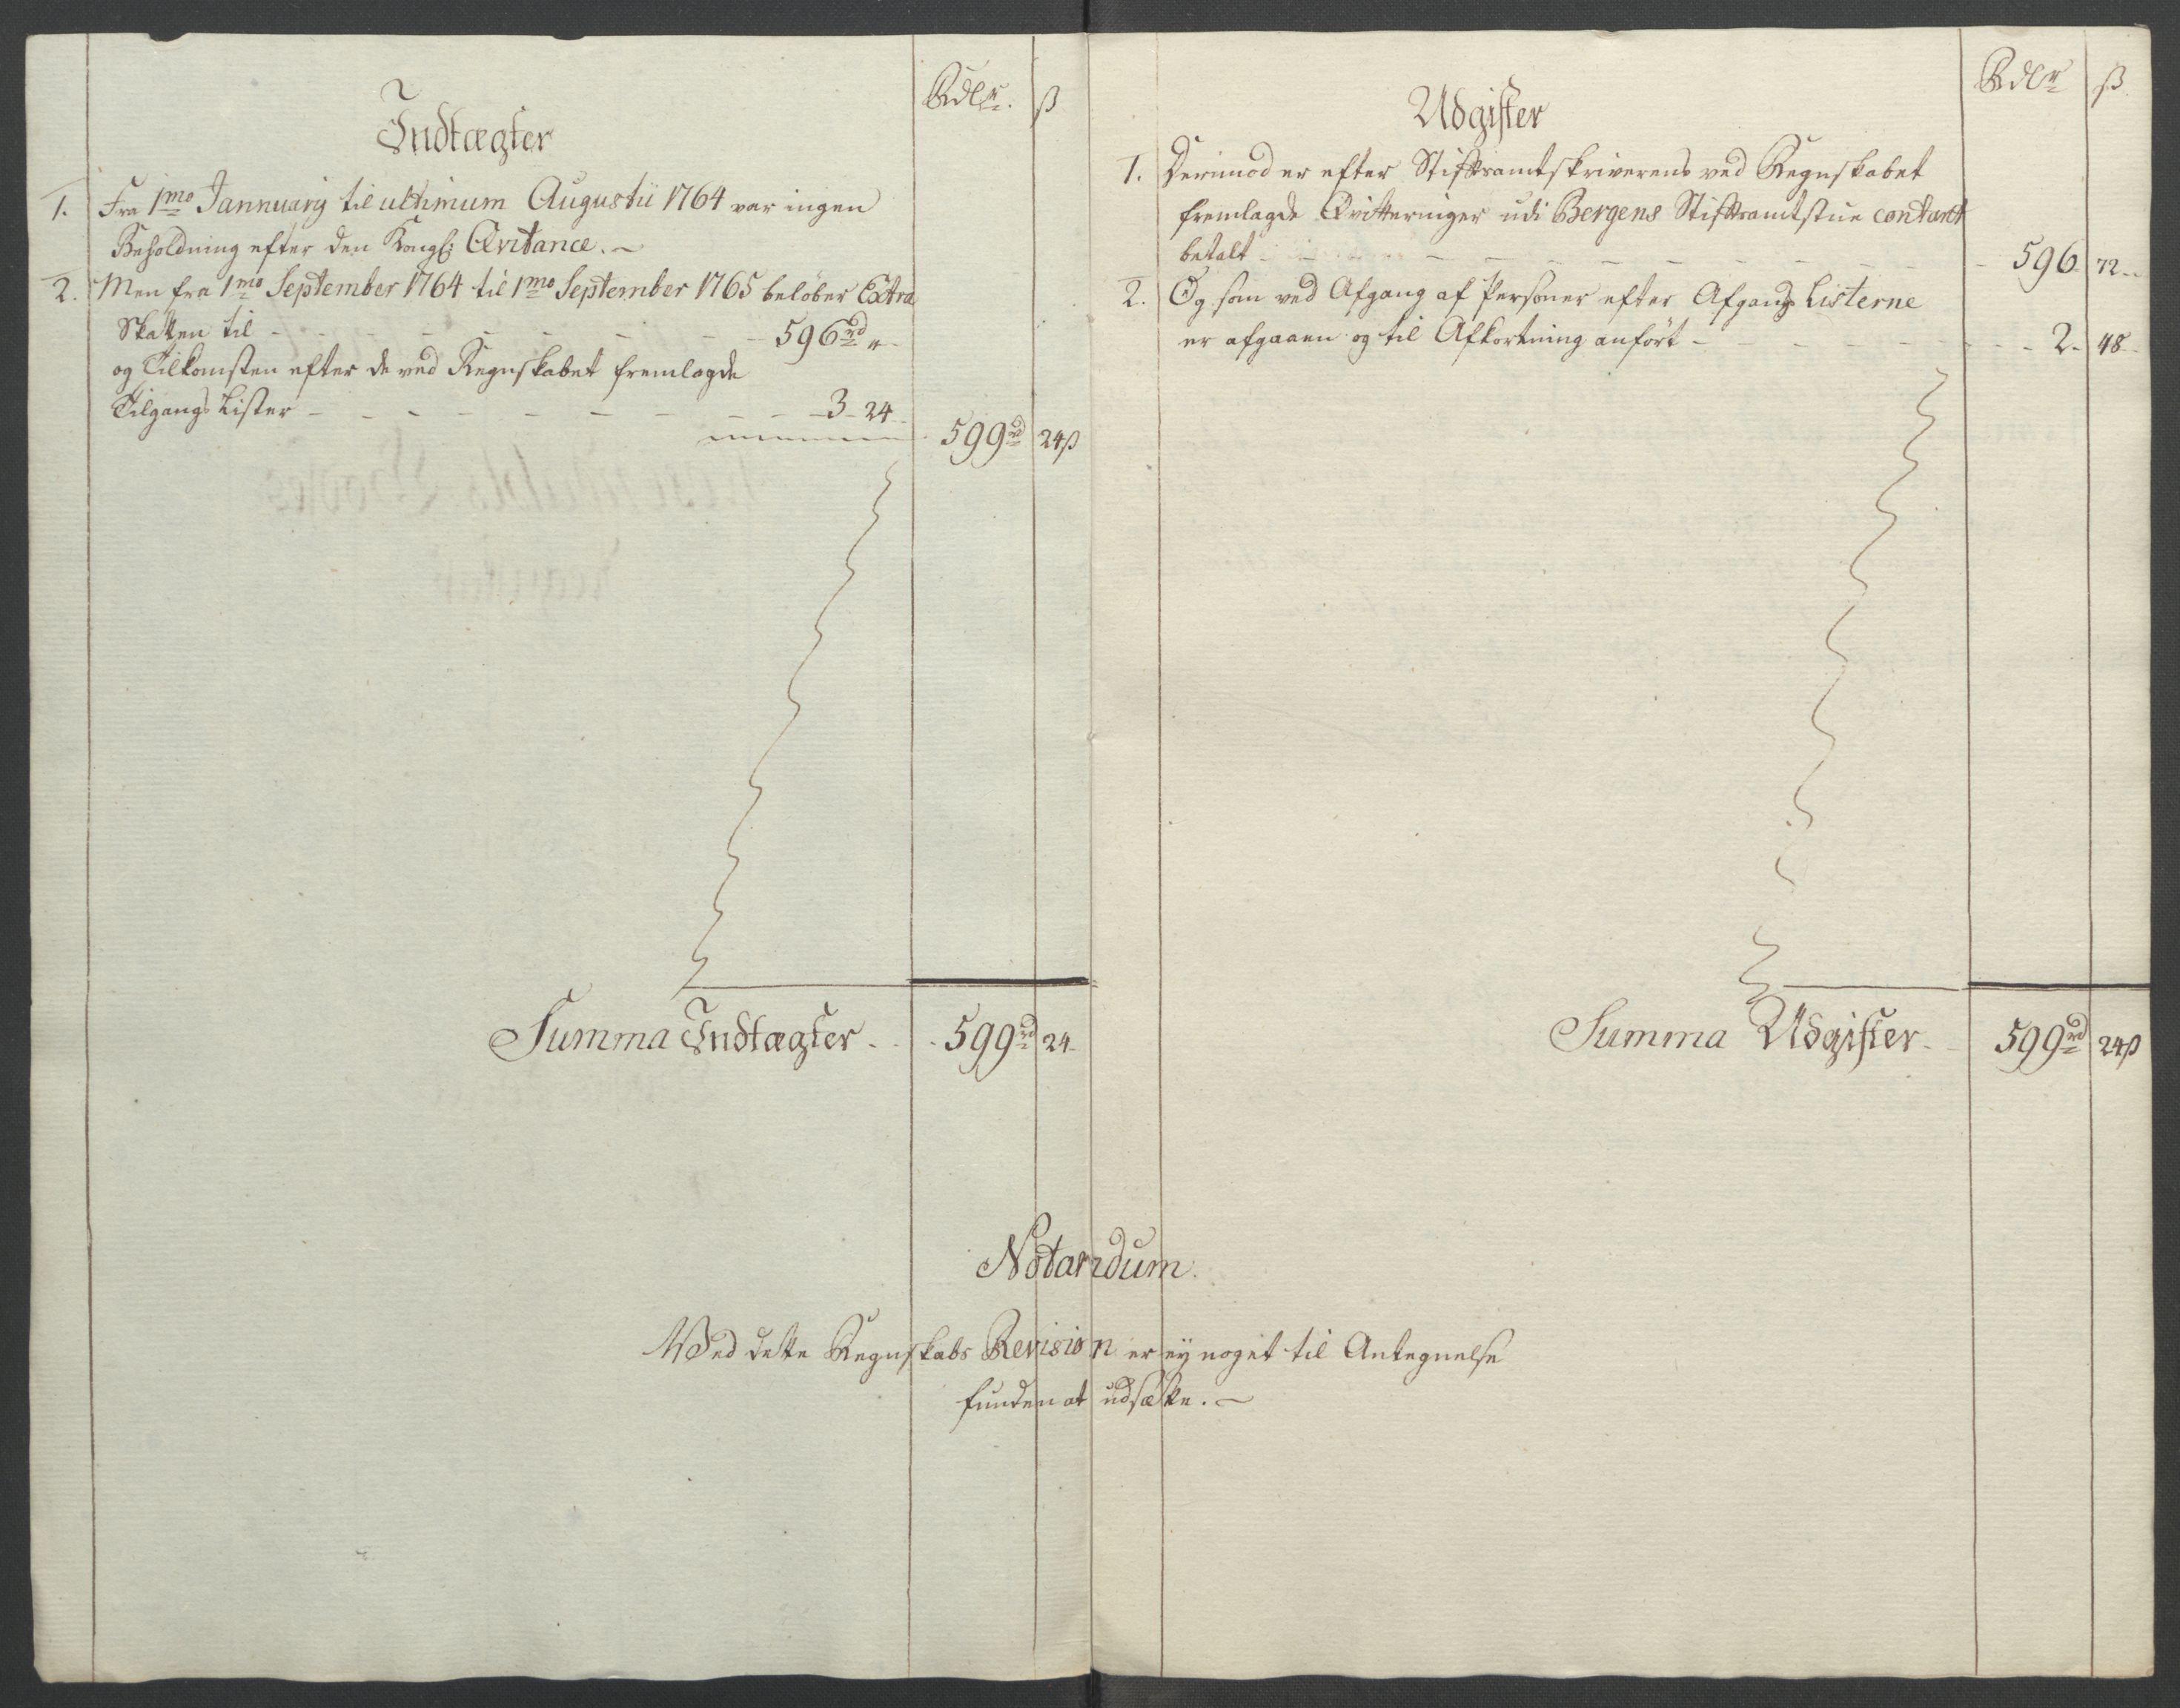 Rdlr. ß
Indtægter
1. Fra 1mo Jannuarÿ til ultimum Augustii 1764 var ingen
Beholdning efter den Kongl: Qvitance. ~
2. Men fra 1mo September 1764 til 1mo September 1765 beløber Extra
Skatten til - - - - - - 596rd "-
og Tilkomsten efter de ved Regnskabet fremlagde
Tilgangs Lister - - - - - - - 3- 24-
599rd 24ß
Summa Indtægter - 599rd 24-
Rdlr ß
Udgifter
1. Derimod er efter Stiftsamtskriverens ved Regnskabet
fremlagde Qvitteringer udi Bergens Stiftsamtstue contant
betalt - - - - - - - 596- 72-
2. Og som ved Afgang af Personer efter Afgangs Listerne
er afgaaen og til Afkortning anført - - - - - 2- 48-
Summa Udgifter - 599rd 24ß
Notandum.
Ved dette Regnskabs Revision er eÿ noget til Antegnelse
funden at udsætte. ~